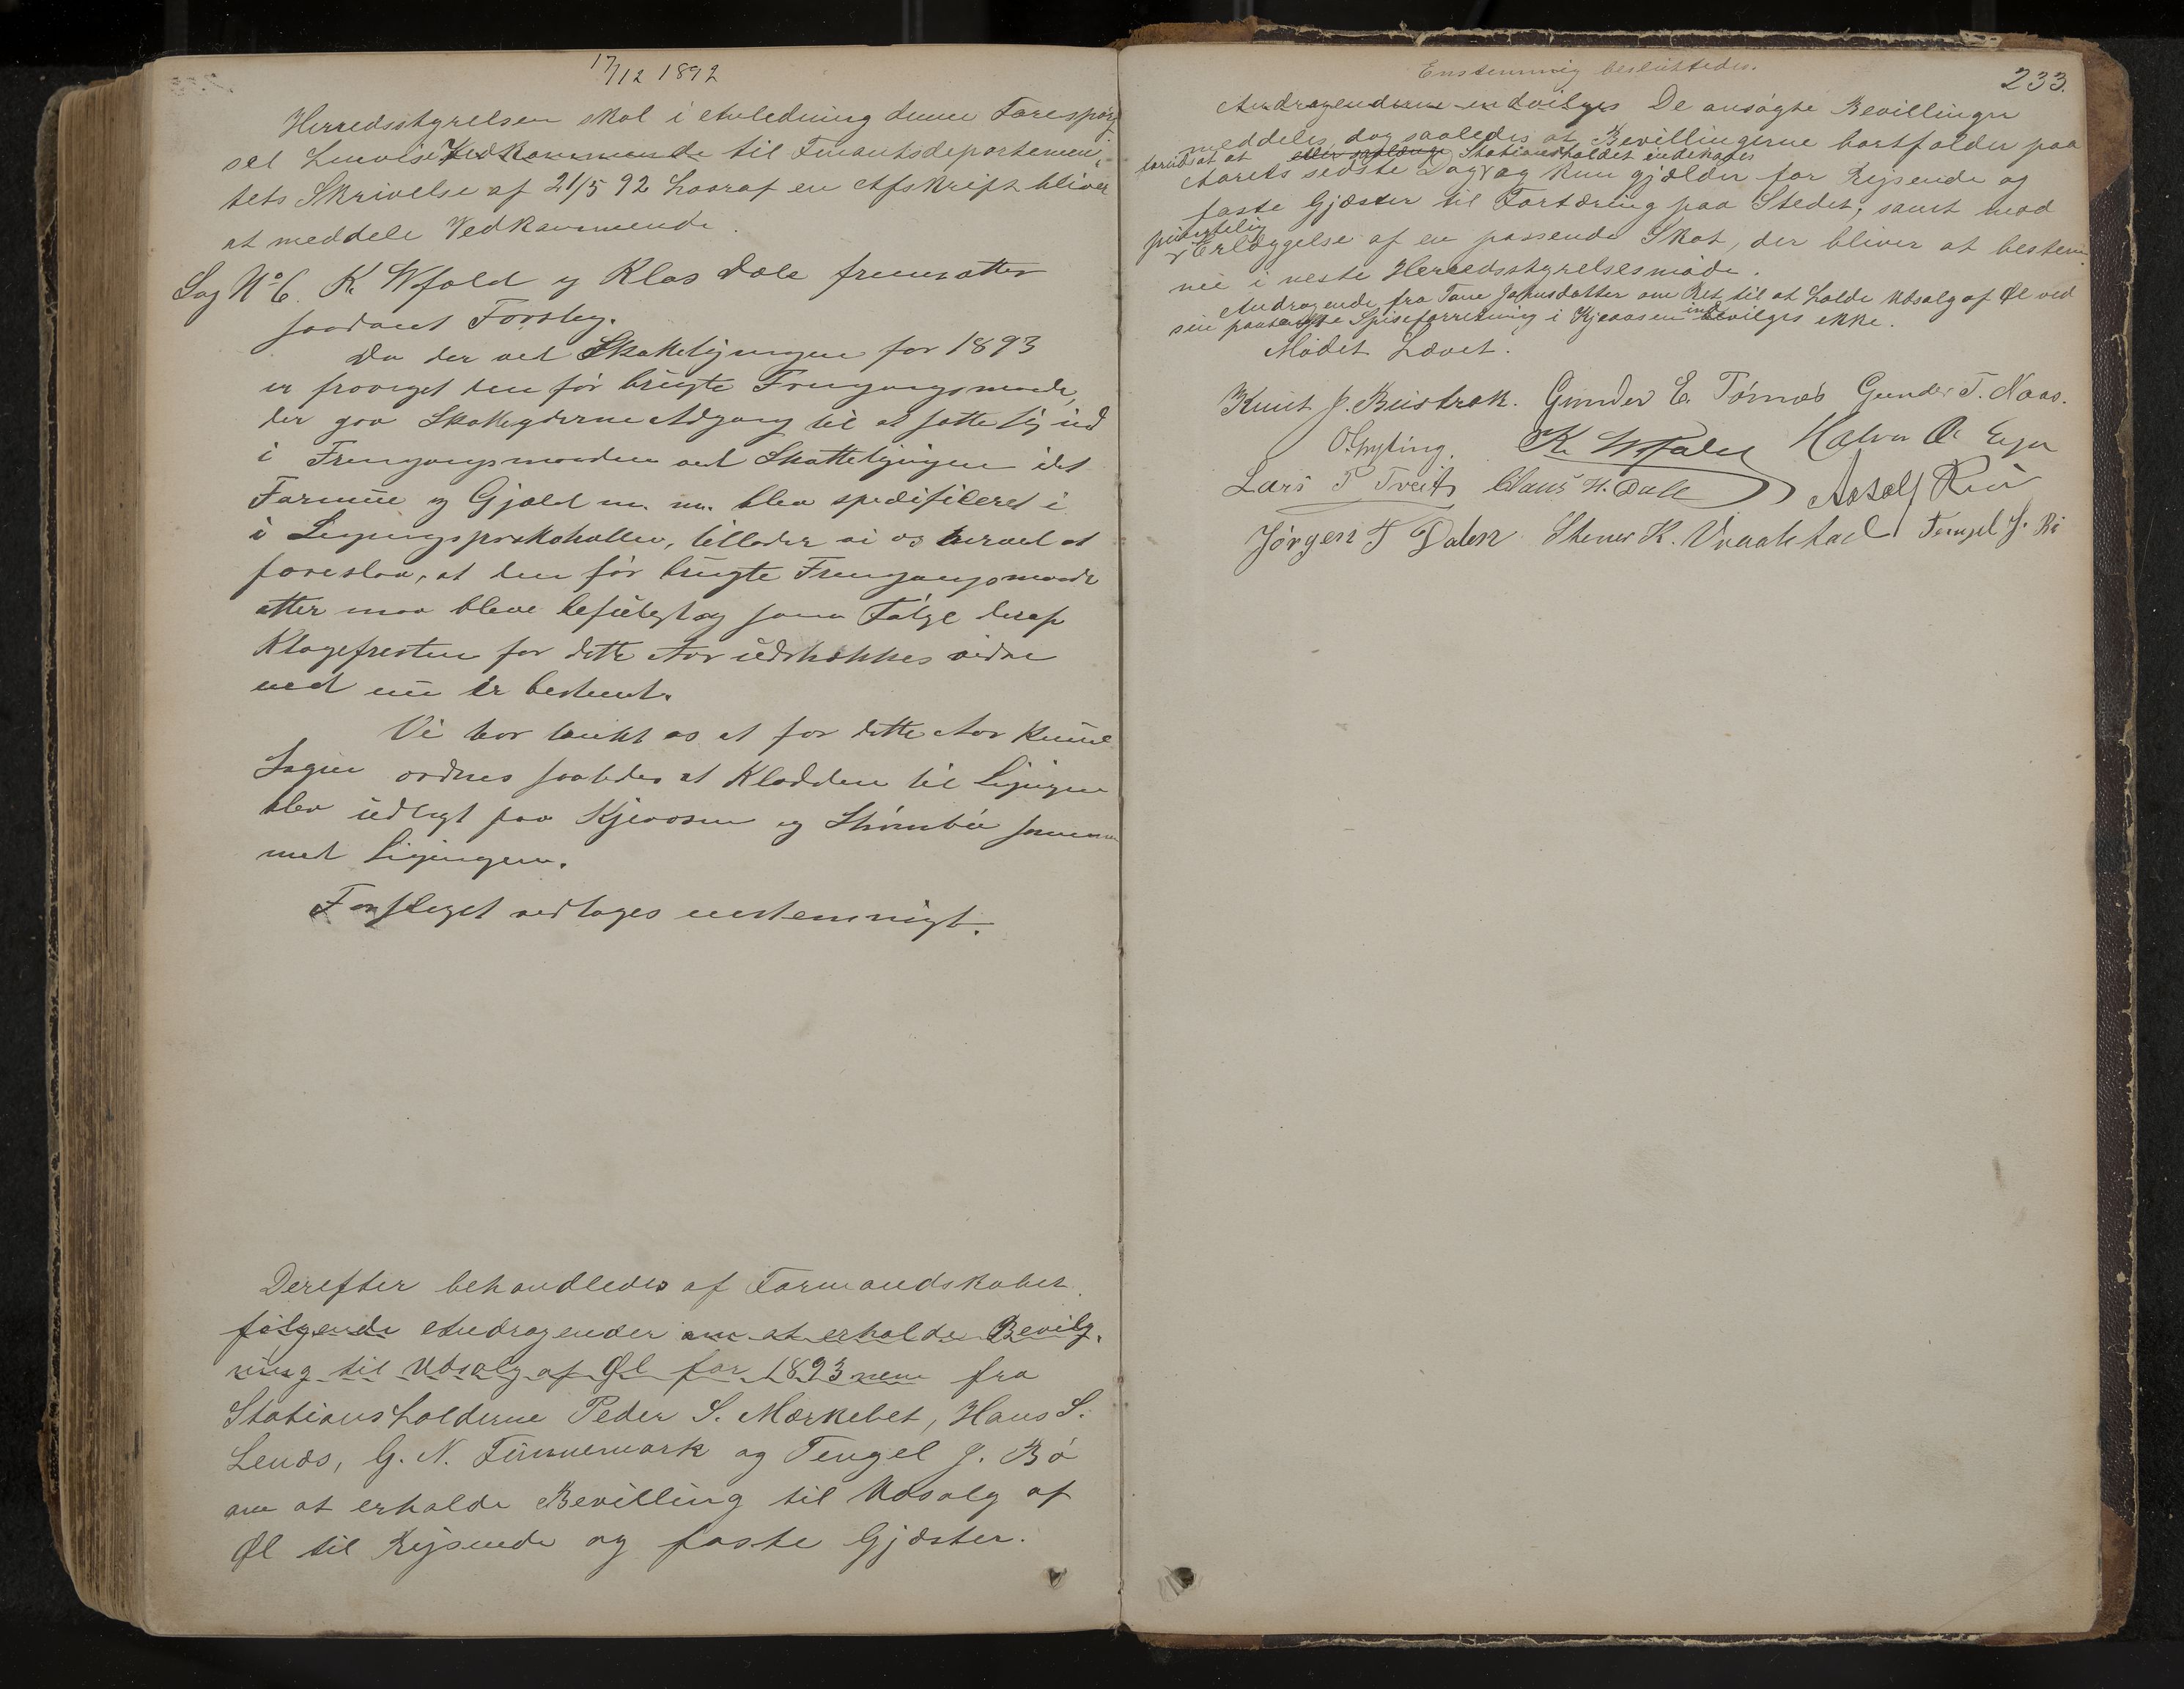 17/12 1892
Herredsstyrelsen skal i Anledning denne Forespørg
sel henvise Vedkommende til Finantsdepartemen-
tets Skrivelse af 21/5 92 hvoraf en Afskrift bliver
at meddele Vedkommende.
Sag No 6. K. Wfald og Klas Dale fremsatter
saadant Forslag.
Da der ved Skatteligningen for 1893
er fraveget den før brugte Fremgangsmaade,
der gav Skatteyderne Adgang til at sætte sig ind
i Fremgangsmaaden ved Skatteligningen idet
Formue og Gjæld m. m. blev spedificeret i
i Ligningsprotokollen, tillader vi os herved at
foreslaa, at den før brugte Fremgangsmaade
atter maa blive befulgt og som Følge deraf
Klagefristen for dette Aar udstrækkes videre
end nu er bestemt.
Vi har tænkt os at for dette Aar kunde
Sagen ordnes saaledes at Kladden til Ligningen
blev udlagt paa Kjeaasen og Strømbu sammen
med Ligningen.
Forslaget vedtages enstemmigt.
Derefter behandledes af Formandskabet
følgende Andragender om at erholde Bevilg-
ning til Udsalg af Øl for 1893 nem fra
Stationsholderne Peder S. Mærkebet, Hans S.
Lends, G. N. Finnemark og Tengel J. Bø
om at erholde Bevilling til Udsalg af
Øl til Rejsende og faste Gjæster.
Enstemmig besluttedes.
233.
Andragenderne indvilges De ansøgte Bevillinger
meddeles dog saaledes at Bevillingerne bortfalder paa
forudsat at eller saalænge Stationsholdet indehaves
Aarets sidste Dag og kun gjælder for Rejsende og
faste Gjæster til Fortæring paa Stedet, samt mod
Erlæggelse af en passende Skat, der bliver at bestem-
me i neste Herredsstyrelsesmøde.
Andragende fra Tone Johnsdatter om Ret til at holde Udsalg af Øl ved
sin paatænkte Spiseforretning i Kjeaasen indvilges ikke.
Mødet hævet.
Knut J. Bustrak. Gunder E. Tørnes Gunder T. Naas.
O. Gyting. K. Wfald Halvor O. Ejer
Lars P Tveit Claus H. Dale Aasolf Rui
Jørgen T Dalen Stener K. Vraalstad Tengel J. Bø